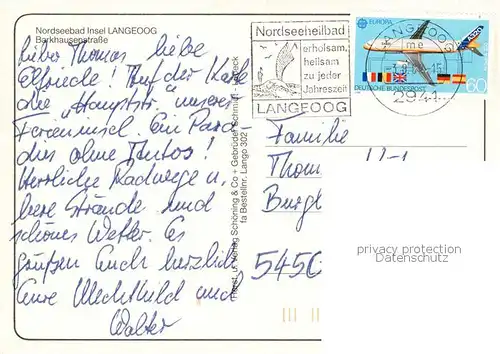 Nordseebad Insel LANGEOOG
Barkhausenstraße
Lieber Thomas liebe
Elfriede! Auf der Karte
die "Hauptstr." unserer
Ferieninsel. Ein Para
dies ohne Autos!
Herrliche Radwege u.
Strände und
schönes Wetter. Es
grüßen Euch herzlich
Eure Mechthild und
Walter
Gebrüder Schmidt - Lübeck
Verlag Schöning & Co + Gebrüder Schmidt
Bestellnr. Lango 302
Nordseeheilbad
erholsam,
heilsam
zu jeder
Jahreszeit
LANGEOOG
LANGEOOG
2941
EUROPA
DEUTSCHE BUNDESPOST
60
Familie
Thom
Burgl
5450
privacy protection
Datenschutz